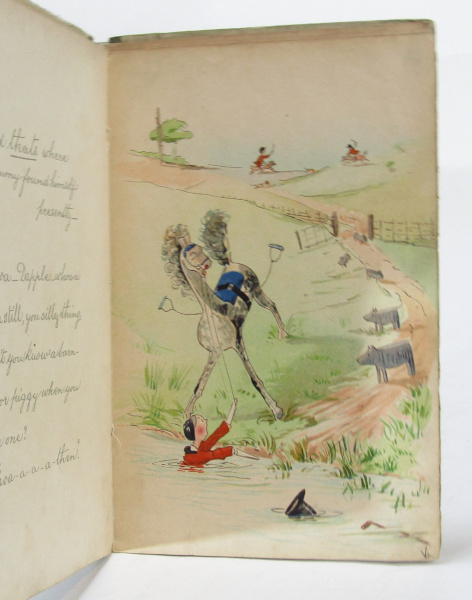 thats where
found himself
presently—
Dapple, whoa
still, you silly thing
you know a barn-
or piggy when you
one?
a-a-a-a-thin?